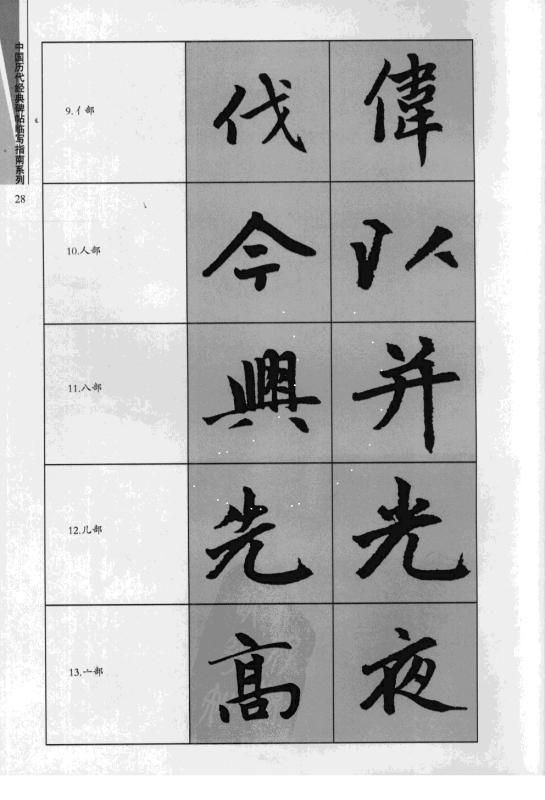 中国历代经典碑帖临写指南系列
28
9.亻部
伐 偉
10.人部
今 以
11.八部
興 并
12.儿部
先 光
13.亠部
髙 夜